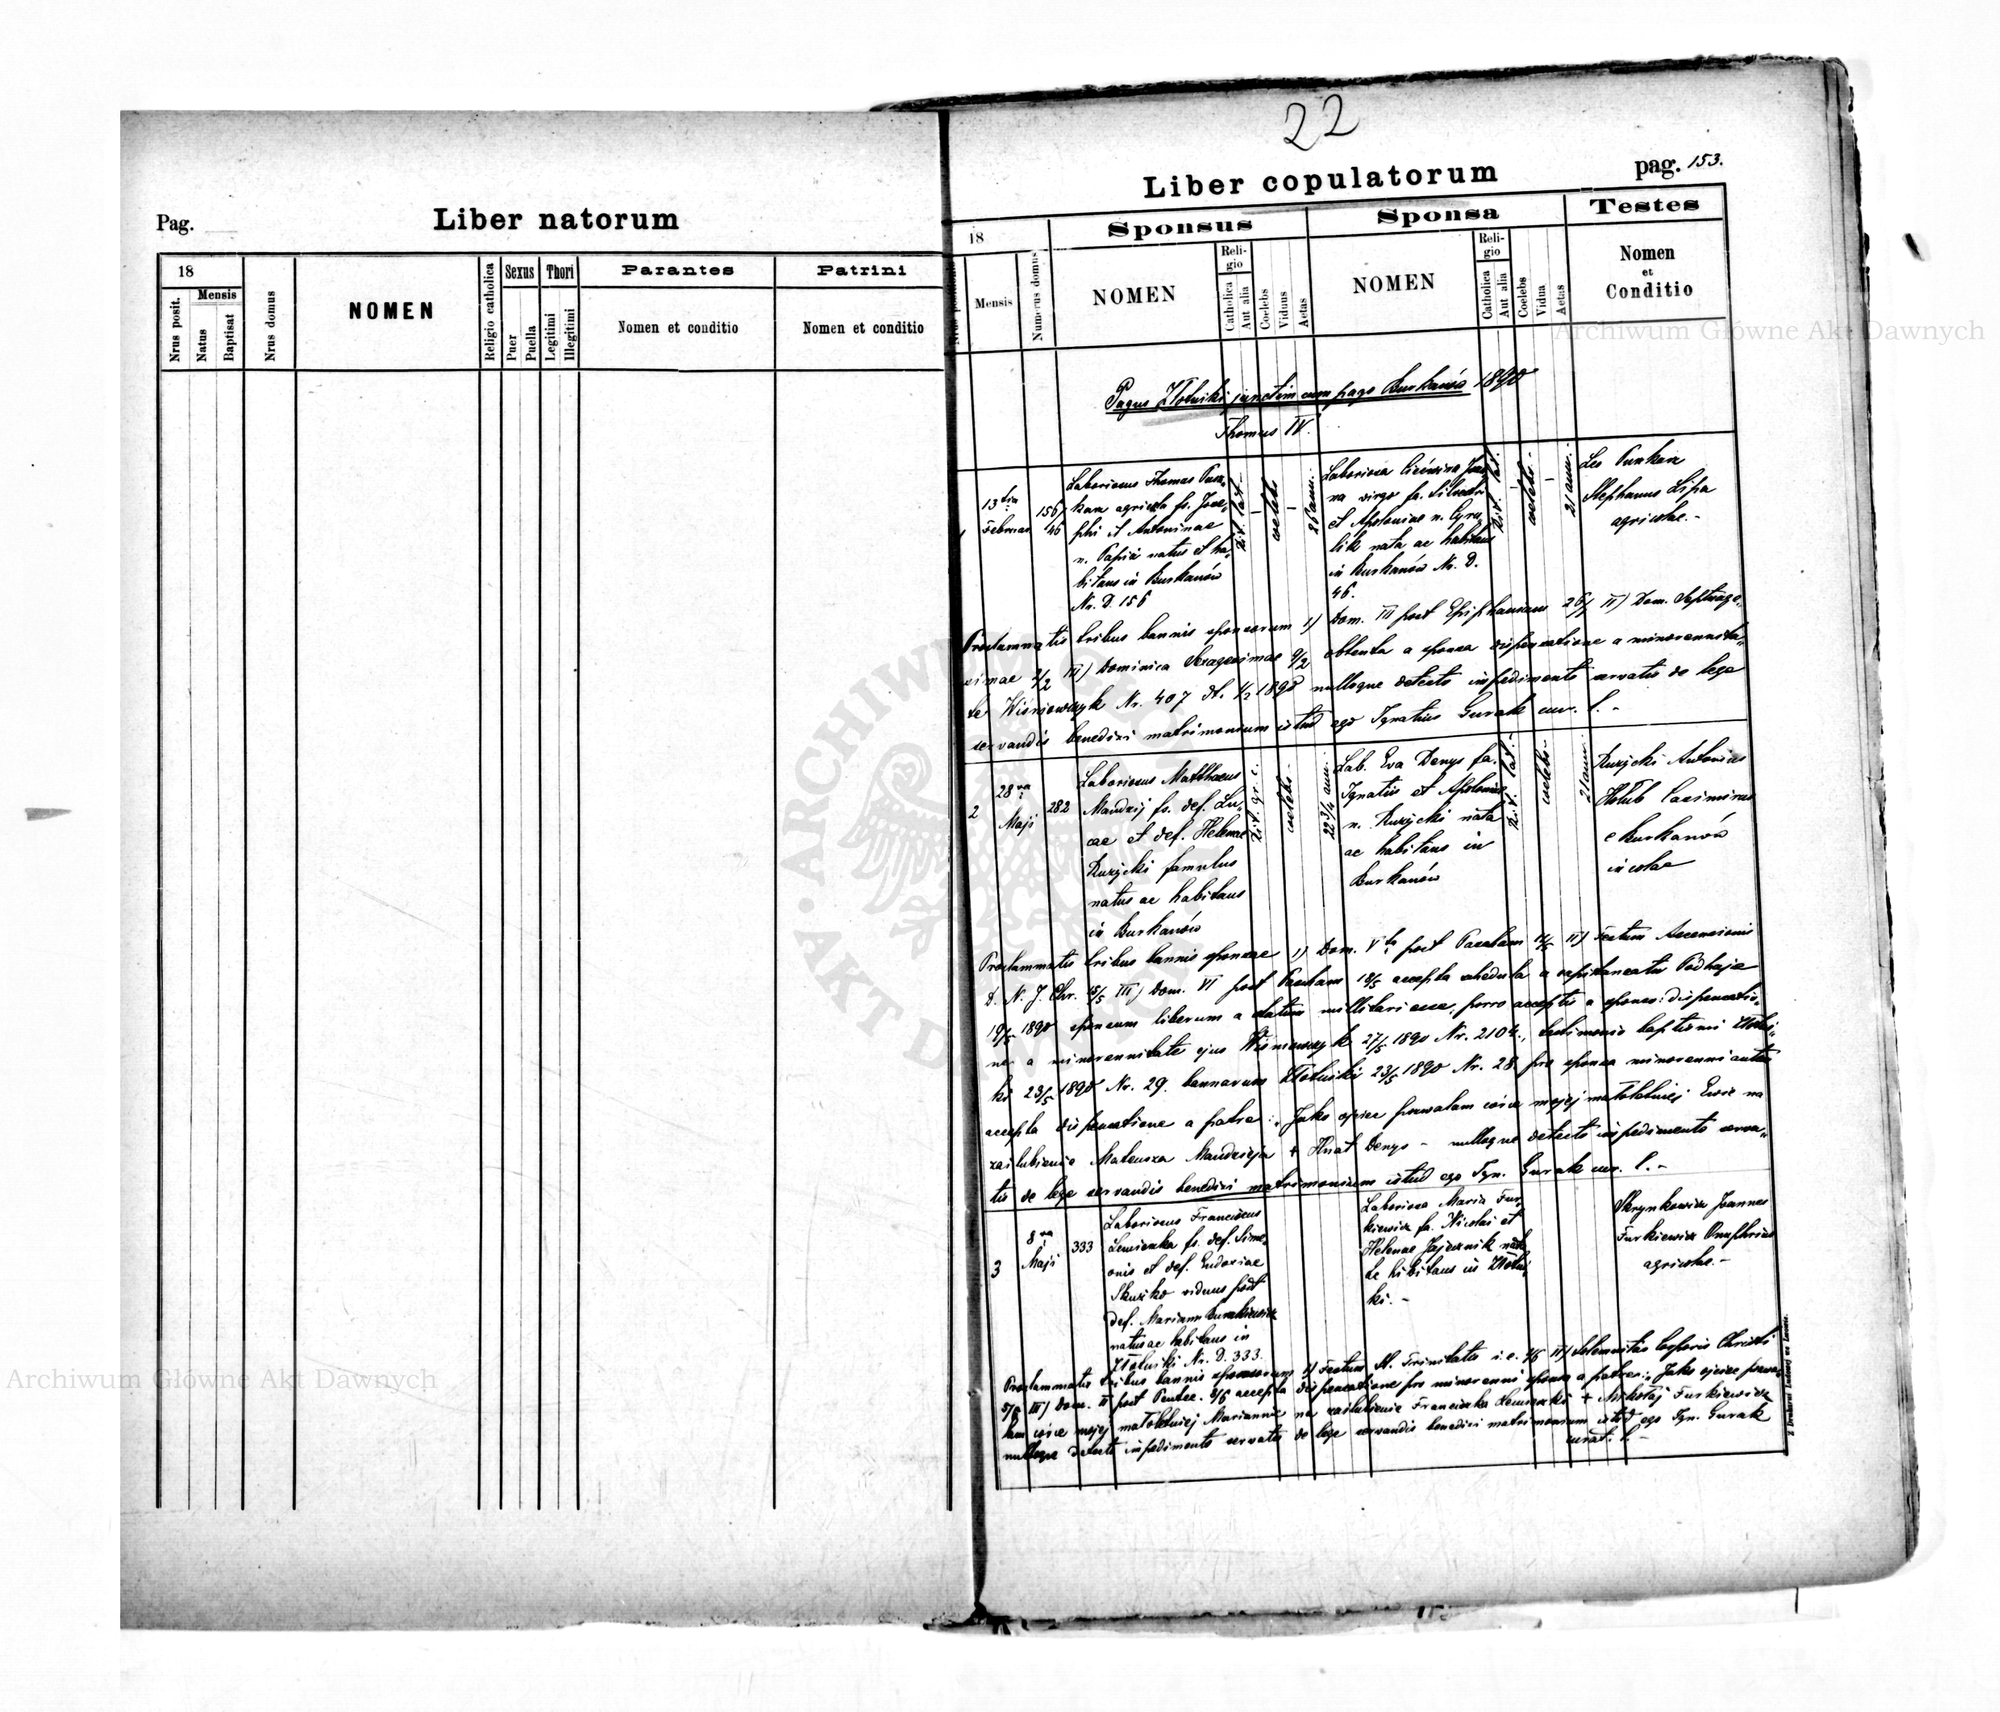 22
Pag.
Liber natorum
18
Mensis
Nrus posit.
Natus
Baptisat
Nrus domus
NOMEN
Religio catholica
Sexus
Puer
Puella
Thori
Legitimi
Illegitimi
Parantes
Nomen et conditio
Patrini
Nomen et conditio
Liber copulatorum
pag. 153.
18
Mensis
Numerus domus
Sponsus
NOMEN
Reli-
gio
Catholica
Aut alia
Coelebs
Viduus
Aetas
Sponsa
NOMEN
Reli-
gio
Catholica
Aut alia
Coelebs
Vidua
Aetas
Testes
Nomen
et
Conditio
Pagus Złotniki junctim cum pago Burkanów 1890
Thomus IV.
1
13tia
Februar
156/
46
Laboriosus Thomas
agricola fs. Jose-
phi et Antoninae
n. natus et ha-
bitans in Burkanów
Nr. D. 156
rit. lat.
coelebs
Laboriosa
na virgo fa.
et Apoloniae n. Cyru-
lik nata ac habitans
in Burkanów Nr. D.
46.
rit. lat.
coelebs
21 ann.
Leo
Stephanus Lipa
agricolae.-
Proclammatis tribus bannis sponsorum I) Dom. III post Epiphaniam 26/1 II) Dom. Septuage-
simae 2/2 III) Dominica Sexagesimae 9/2 obtenta a sponsa dispensatione a minorennita-
te Wiśniowczyk Nr. 407 dt. 1/2 1890 nulloque detecto impedimento servatis de lege
servandis benedixi matrimonium istud ego Ignatius Gurak cur. l. -
2
28va
Maji
282
Laboriosus Matthaeus
Mandzij fs. def. Lu-
cae et def. Helenae
Ruzycki famulus
natus ac habitans
in Burkanów
rit. gr. c.
coelebs
22 3/4 ann.
Lab. Eva Denys fa.
Ignatii et Apoloniae
n. Ruzycki nata
ac habitans in
Burkanów
rit. lat.
coelebs
21 ann.
Ruzycki Antonius
Hołub Casimirus
e Burkanów
incolae
Proclammatis tribus bannis sponsae I) Dom. Vta post Pascham II) Festum Ascensionis
D. N. J. Chr. 15/5 III) Dom. VI post Pascham 18/5 accepta schedula a capitaneatu Podhajce
19/5 1890 sponsum liberum a statu militari esse, porro acceptis a sponso: dispensatio-
ne a minorennitate ejus Wiśniowczyk 27/5 1890 Nr. 2104, testimonio baptismi Złotni-
ki 23/5 1890 Nr. 29. bannorum Złotniki 23/5 1890 Nr. 28. pro sponsa minorenni autem
accepta dispensatione a patre: "Jako ojciec pozwalam córce mojej małoletniej Ewie na
zaślubienie Mateusza Mandzieja + Hnat Denys - nulloque detecto impedimento serva-
tis de lege servandis benedixi matrimonium istud ego Ign. Gurak cur. l. -
3
8va
Maji
333
Laboriosus Franciscus
fs. def. Sime-
onis et def. Eudoxiae
Skuzko viduus post
def. Mariann
natus ac habitans in
Złotniki Nr. D. 333.
Laboriosa Maria Fur-
kiewicz fa. Nicolai et
Helenae Jajecznik na-
ta habitans in Złotni-
ki. -
Skrynkowicz Joannes
Furkiewicz Onuphrius
agricolae. -
Proclammatis tribus bannis sponsorum I) Festum St. Trinitatis i. e. 1/6 II) Solemnitas Corporis Christi
5/6 III) Dom. II post Pentec. 8/6 accepta dispensatione pro minorenni sponsa a patre: "Jako ojciec pozwa-
lam córce mojej małoletniej Mariannie na zaślubienie Franciszka + Mikołaj Furkiewicz
nulloque detecto impedimento servatis de lege servandis benedixi matrimonium istud ego Ign. Gurak
curat. l. -
Z Drukarni Ludowej we Lwowie.
Archiwum Główne Akt Dawnych
Archiwum Główne Akt Dawnych